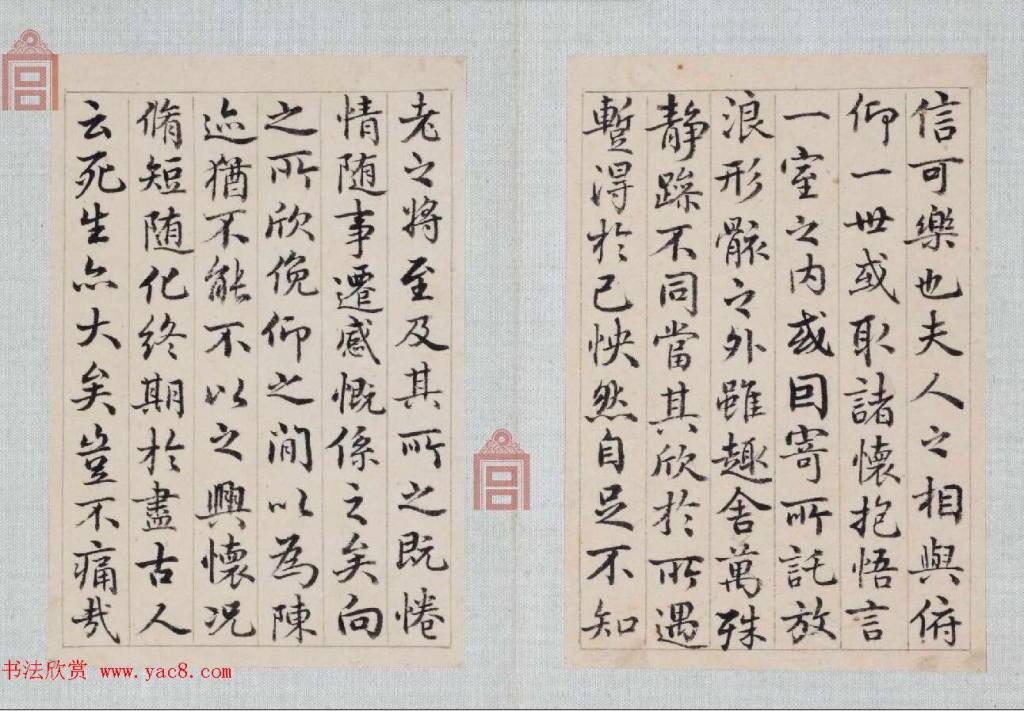 信可樂也夫人之相與俯
仰一世或取諸懷抱悟言
一室之内或因寄所託放
浪形骸之外雖趣舍萬殊
静躁不同當其欣於所遇
暫得於己怏然自足不知
老之將至及其所之既惓
情随事遷感慨係之矣向
之所欣俛仰之間以為陳
迹猶不能不以之興懷況
脩短随化終期於盡古人
云死生亦大矣豈不痛哉
书法欣赏 www.yac8.com